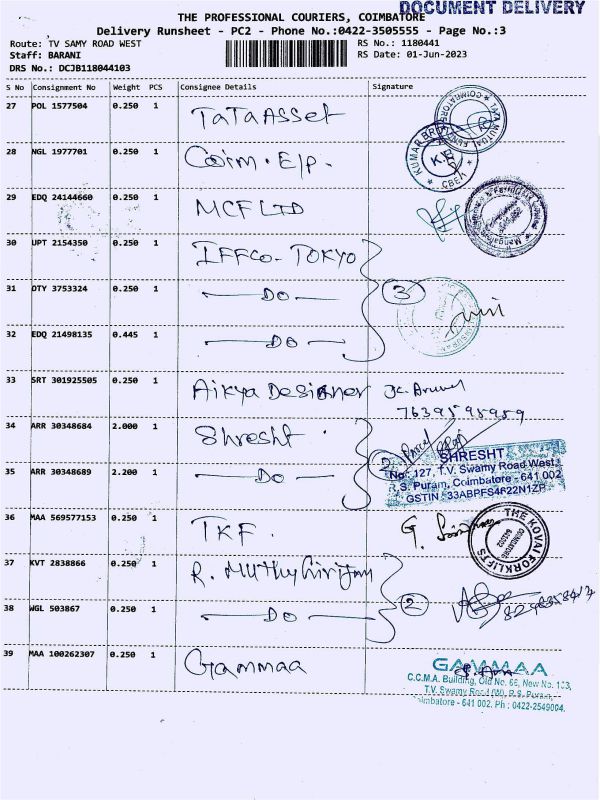 DOCUMENT DELIVERY
THE PROFESSIONAL COURIERS, COIMBATORE
Delivery Runsheet - PC2 - Phone No.:0422-3505555 - Page No.:3
Route: TV SAMY ROAD WEST
Staff: BARANI
DRS No.: DCJB118044103
RS No.: 1180441
RS Date: 01-Jun-2023
S No Consignment No Weight PCS Consignee Details Signature
27 POL 1577504 0.250 1 TaTa Asset
28 NGL 1977701 0.250 1 Coim. E/P.
KUMAR BRO
K.B
CBE
29 EDQ 24144660 0.250 1 MCF LTD
30 UPT 2154350 0.250 1 IFFCO-TOKYO
31 OTY 3753324 0.250 1 DO 3
32 EDQ 21498135 0.445 1 DO
33 SRT 301925505 0.250 1 Aikya Designer
7639595959
34 ARR 30348684 2.000 1 Shresht
2
SHRESHT
No: 127, T.V. Swamy Road West,
R.S. Puram, Coimbatore - 641 002
GSTIN
35 ARR 30348689 2.200 1 DO
36 MAA 569577153 0.250 1 TKF.
THE KOVAI FORKLIFTS
37 KVT 2838866 0.250 1 R.
38 WGL 503867 0.250 1 DO 2
39 MAA 100262307 0.250 1 Gammaa
GAMMAA
C.C.M.A. Building, Old No. 66, New No.
T.V. Swamy Road (W), R.S. Puram,
Coimbatore - 641 002. Ph : 0422-2549004.